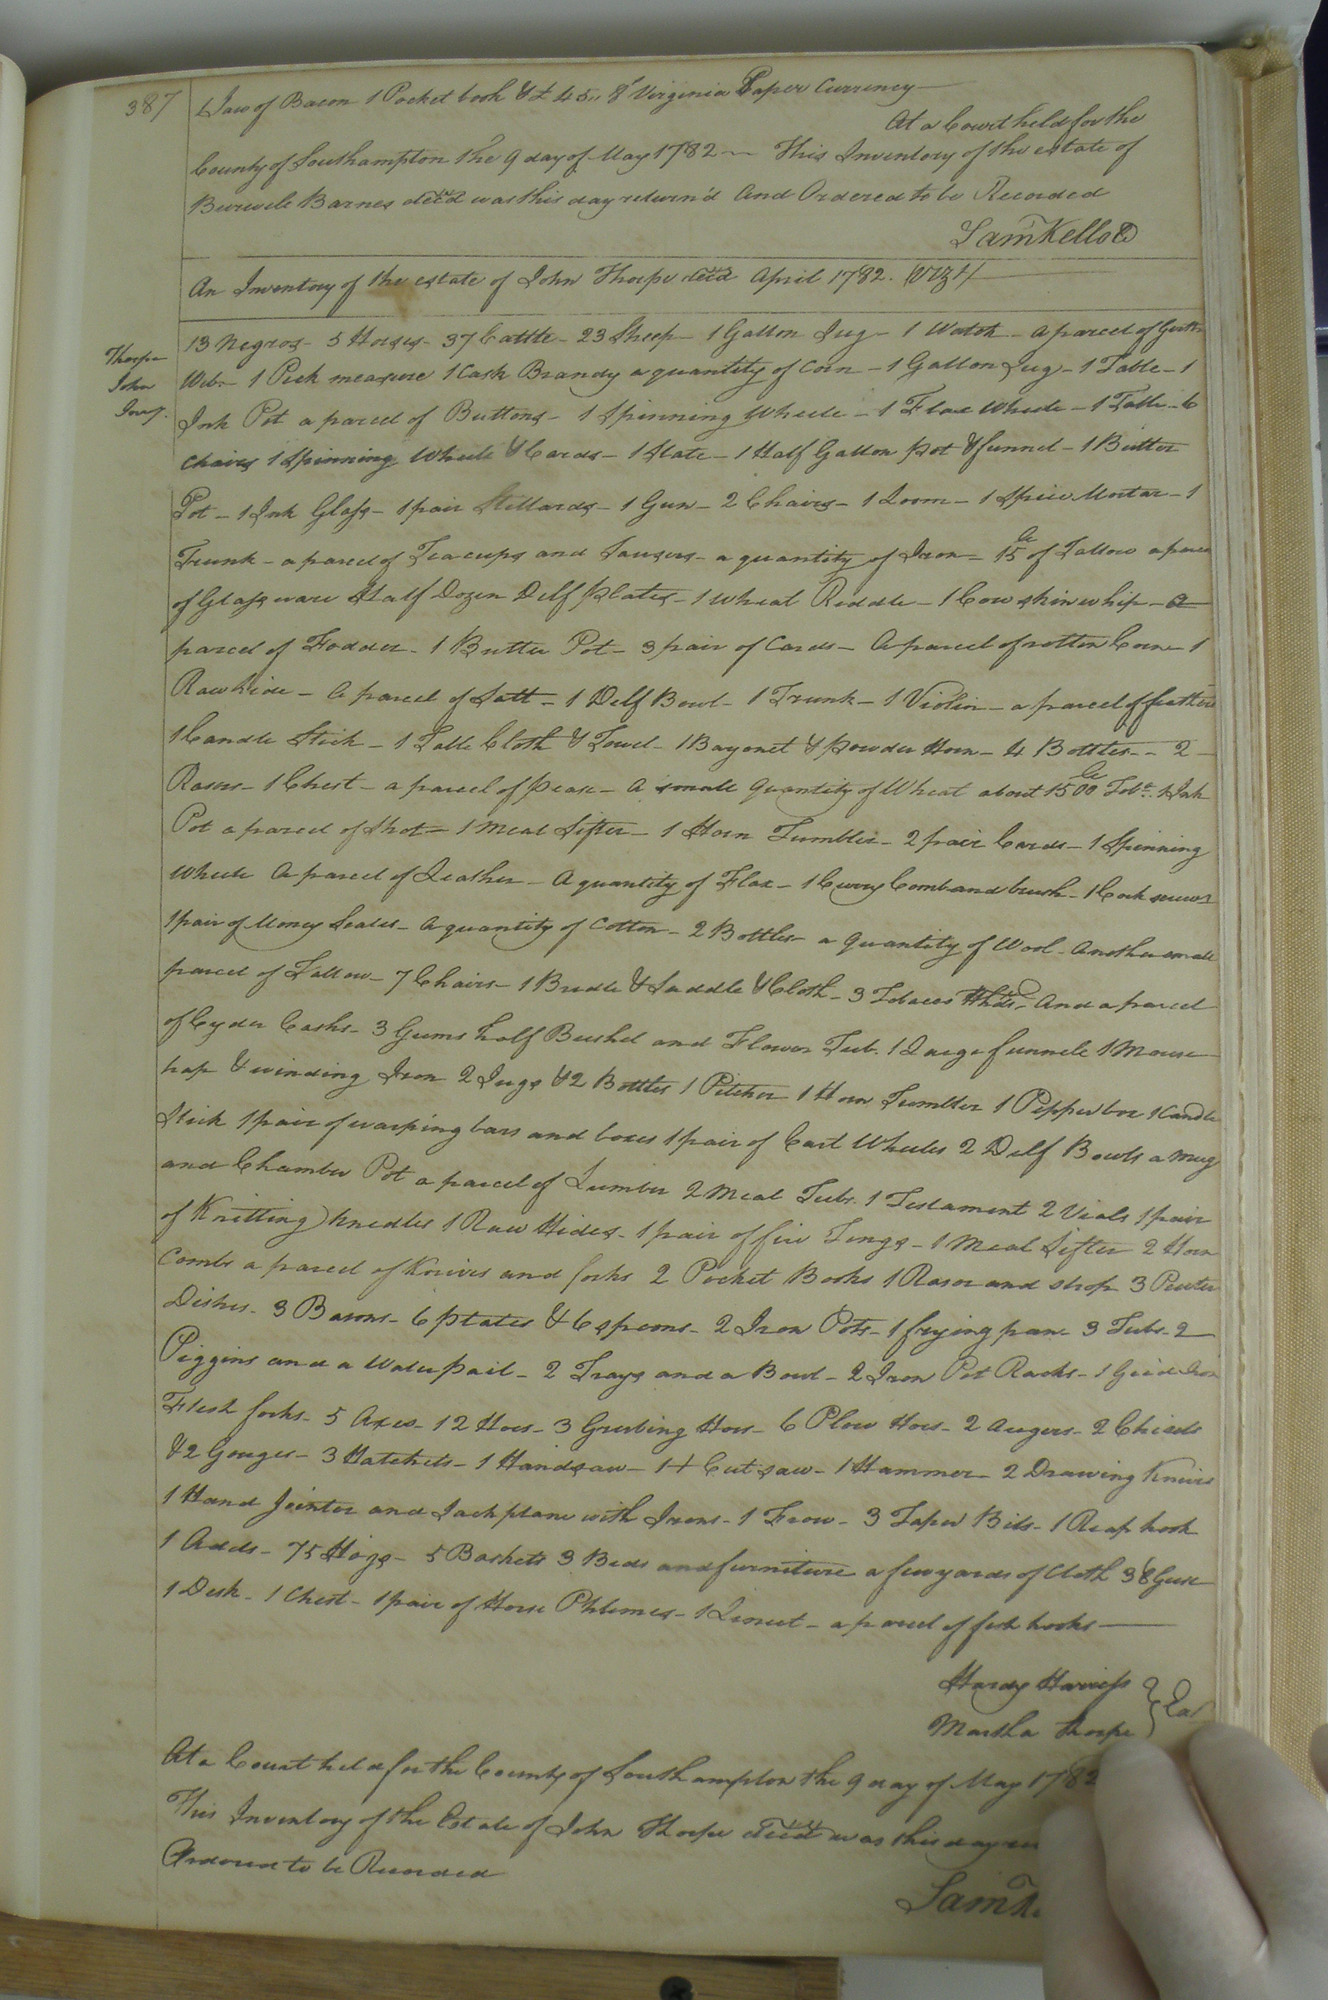 387
1 Jaw of Bacon 1 Pocket book & £ 45,, 8s Virginia Paper Currency
At a Court held for the
County of Southampton the 9 day of May 1782 — This Inventory of the estate of
Burwell Barnes decd was this day return'd And Ordered to be Recorded
Saml Kello
An Inventory of the estate of John Thorpe decd April 1782. (Vizt)
Thorpe
John
Invy.
13 Negros - 5 Horses - 37 Cattle - 23 Sheep - 1 Gallon Jug - 1 Watch - a parcel of
Web - 1 Peck measure 1 Cask Brandy a quantity of Corn - 1 Gallon Jug - 1 Table - 1
Ink Pot a parcel of Buttons - 1 Spinning Wheele - 1 Flax Wheele - 1 Table - 6
Chairs 1 Spinning Wheele & Cards - 1 Slate - 1 Half Gallon pot & funnel - 1 Butter
Pot - 1 Ink Glass - 1 pair Stillards - 1 Gun - 2 Chairs - 1 Loom - 1 Spice Mortar - 1
Trunk - a parcel of Teacups and Sausers - a quantity of Iron - 15 lb of Tallow a parcel
of Glassware Half Dozen Delf plates - 1 Wheat Riddle - 1 Cow skin whip - a
parcel of Fodder - 1 Butter Pot - 3 pair of Cards - A parcel of rotten Corn - 1
Rawhide - A parcel of Salt - 1 Delf Bowl - 1 Trunk - 1 Violin - a parcel of feathers
1 Candle Stick - 1 Table Cloth & Towel - 1 Bayonet & powder Horn - 4 Bottles - 2
Rasors - 1 Chest - a parcel of pease - A small Quantity of Wheat about 1500 lb Tobo. 1 Ink
Pot a parcel of Shot - 1 Meal Sifter - 1 Horn Tumbler - 2 pair Cards - 1 Spinning
Wheele A parcel of Leather - A quantity of Flax - 1 Curry Comb and brush - 1 Cork screw
1 pair of Money Scales - A quantity of Cotton - 2 Bottles - a Quantity of Wool - Another small
parcel of Tallow - 7 Chairs - 1 Bridle & Saddle & Cloth - 3 Tobacco Hhds - And a parcel
of Cyder Casks - 3 Gums half Bushel and Flower Tub. 1 Large funnele 1 Mouse
trap & winding Iron 2 Jugs & 2 Bottles 1 Pitcher 1 Horn Tumbler 1 Pepper box 1 Candle
Stick 1 pair of warping bars and boxes 1 pair of Cart Wheeles 2 Delf Bowls a Mug
and Chamber Pot a parcel of Lumber 2 Meal Tubs. 1 Testament 2 Vials 1 pair
of Knitting needles 1 Raw Hides - 1 pair of fire Tongs - 1 Meal Sifter 2 Horn
Combs a parcel of Knives and forks 2 Pocket Books 1 Rasor and strop 3 Pewter
Dishes - 3 Basons - 6 plates & 6 spoons - 2 Iron Pots - 1 frying pan - 3 Tubs - 2
Piggins and a Water pail - 2 Trays and a Bowl - 2 Iron Pot Racks - 1 Grid Iron
Flesh forks - 5 Axes - 12 Hoes - 3 Grubing Hoes - 6 Plow Hoes - 2 Augers - 2 Chisels
& 2 Gouges - 3 Hatchets - 1 Handsaw - 1 + Cut saw - 1 Hammer - 2 Drawing Knives
1 Hand Jointer and Jack plane with Irons - 1 Frow - 3 Taper Bits - 1 Reap hook
1 Adds - 75 Hogs - 5 Baskets 3 Beds and furniture a few yards of Cloth 38 Geese
1 Desk - 1 Chest - 1 pair of Horse Phlemes - 1 - a parcel of fish hooks
Hardy Harriss
Martha Thorpe
At a Court held for the County of Southampton the 9 day of May 1782
This Inventory of the Estate of John Thorpe decd was this day
Ordered to be Recorded
Saml